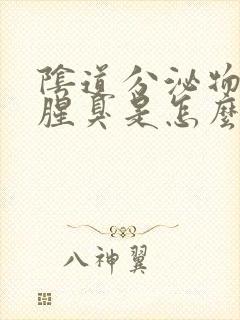 陰道分泌物
腥臭是怎麼
八神翼